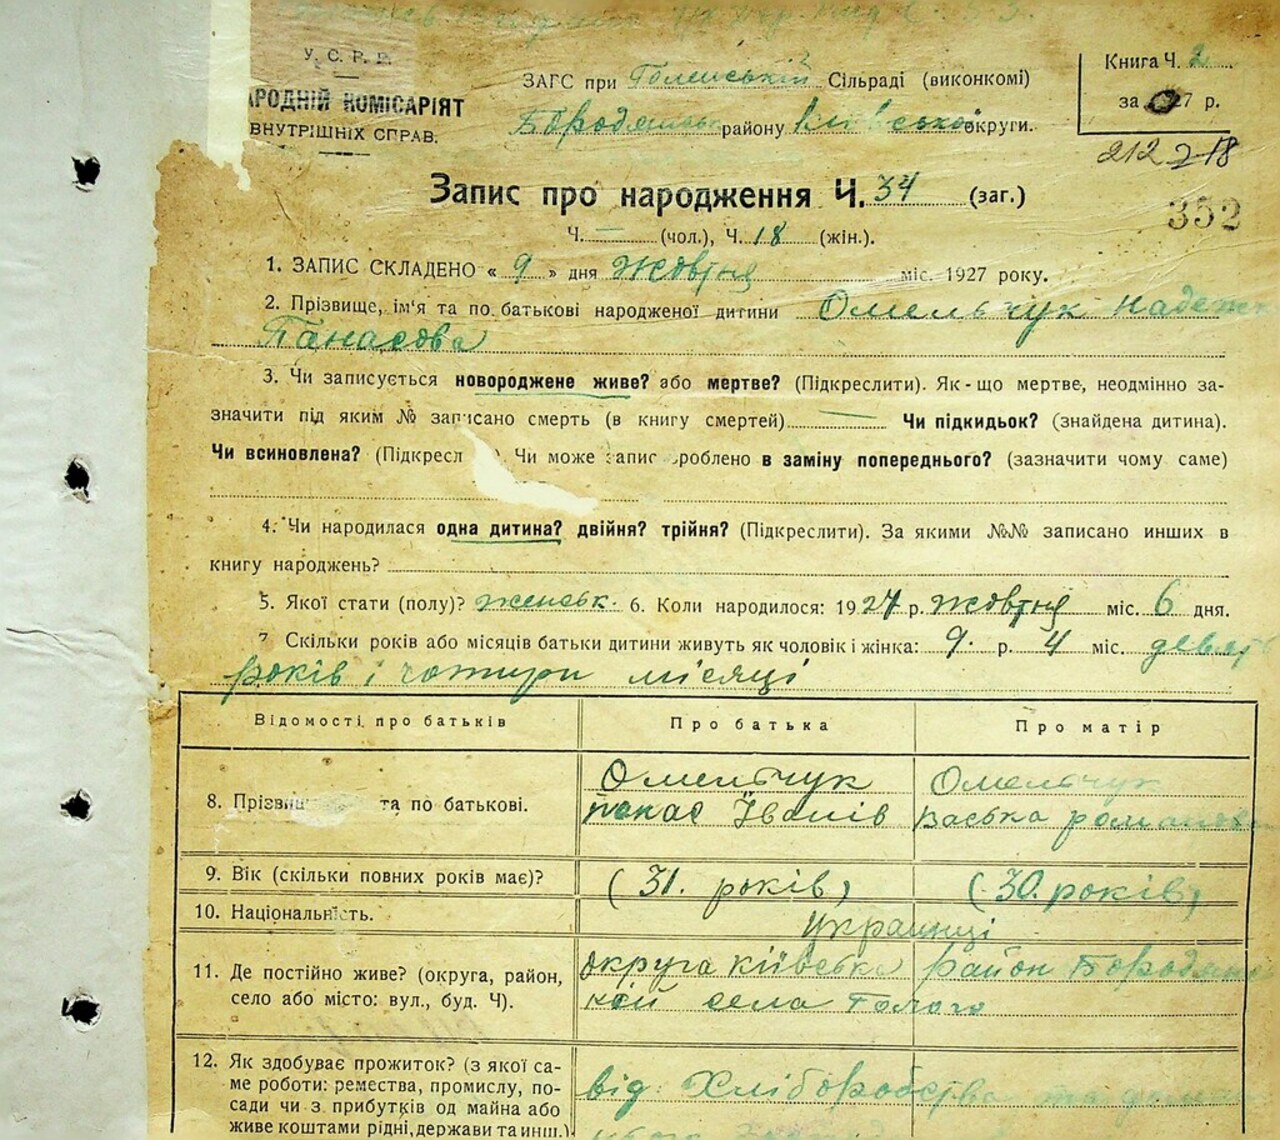 У. С. Р. Р.
АРОДНІЙ КОМІСАРІЯТ
ВНУТРІШНІХ СПРАВ.
ЗАГС при Сільраді (виконкомі)
району округи.
Книга Ч. 2
за 27 р.
212 218
352
Запис про народження Ч. 34 (заг.)
Ч. — (чол.), Ч. 18 (жін.).
1. ЗАПИС СКЛАДЕНО « 9 » дня Жовтня міс. 1927 року.
2. Прізвище, ім'я та по батькові народженої дитини Омельчук
Панасова
3. Чи записується новороджене живе? або мертве? (Підкреслити). Як-що мертве, неодмінно за-
значити під яким № записано смерть (в книгу смертей) — Чи підкидьок? (знайдена дитина).
Чи всиновлена? (Підкресл ). Чи може запис зроблено в заміну попереднього? (зазначити чому саме)
4. Чи народилася одна дитина? двійня? трійня? (Підкреслити). За якими №№ записано инших в
книгу народжень?
5. Якої стати (полу)? женськ. 6. Коли народилося: 1927 р. Жовтня міс. 6 дня.
7 Скільки років або місяців батьки дитини живуть як чоловік і жінка: 9. р. 4 міс. девять
років і чотири місяці
Відомості про батьків Про батька Про матір
8. Прізвищ та по батькові. Омельчук Омельчук
панас Їванів Васька
9. Вік (скільки повних років має)? (31. років) (30. років)
10. Національність. Украинці
11. Де постійно живе? (округа, район, округа київська район
село або місто: вул., буд. Ч). села
12. Як здобуває прожиток? (з якої са-
ме роботи: ремества, промислу, по- від Хліборобства та
сади чи з прибутків од майна або
живе коштами рідні, держави та инш.)